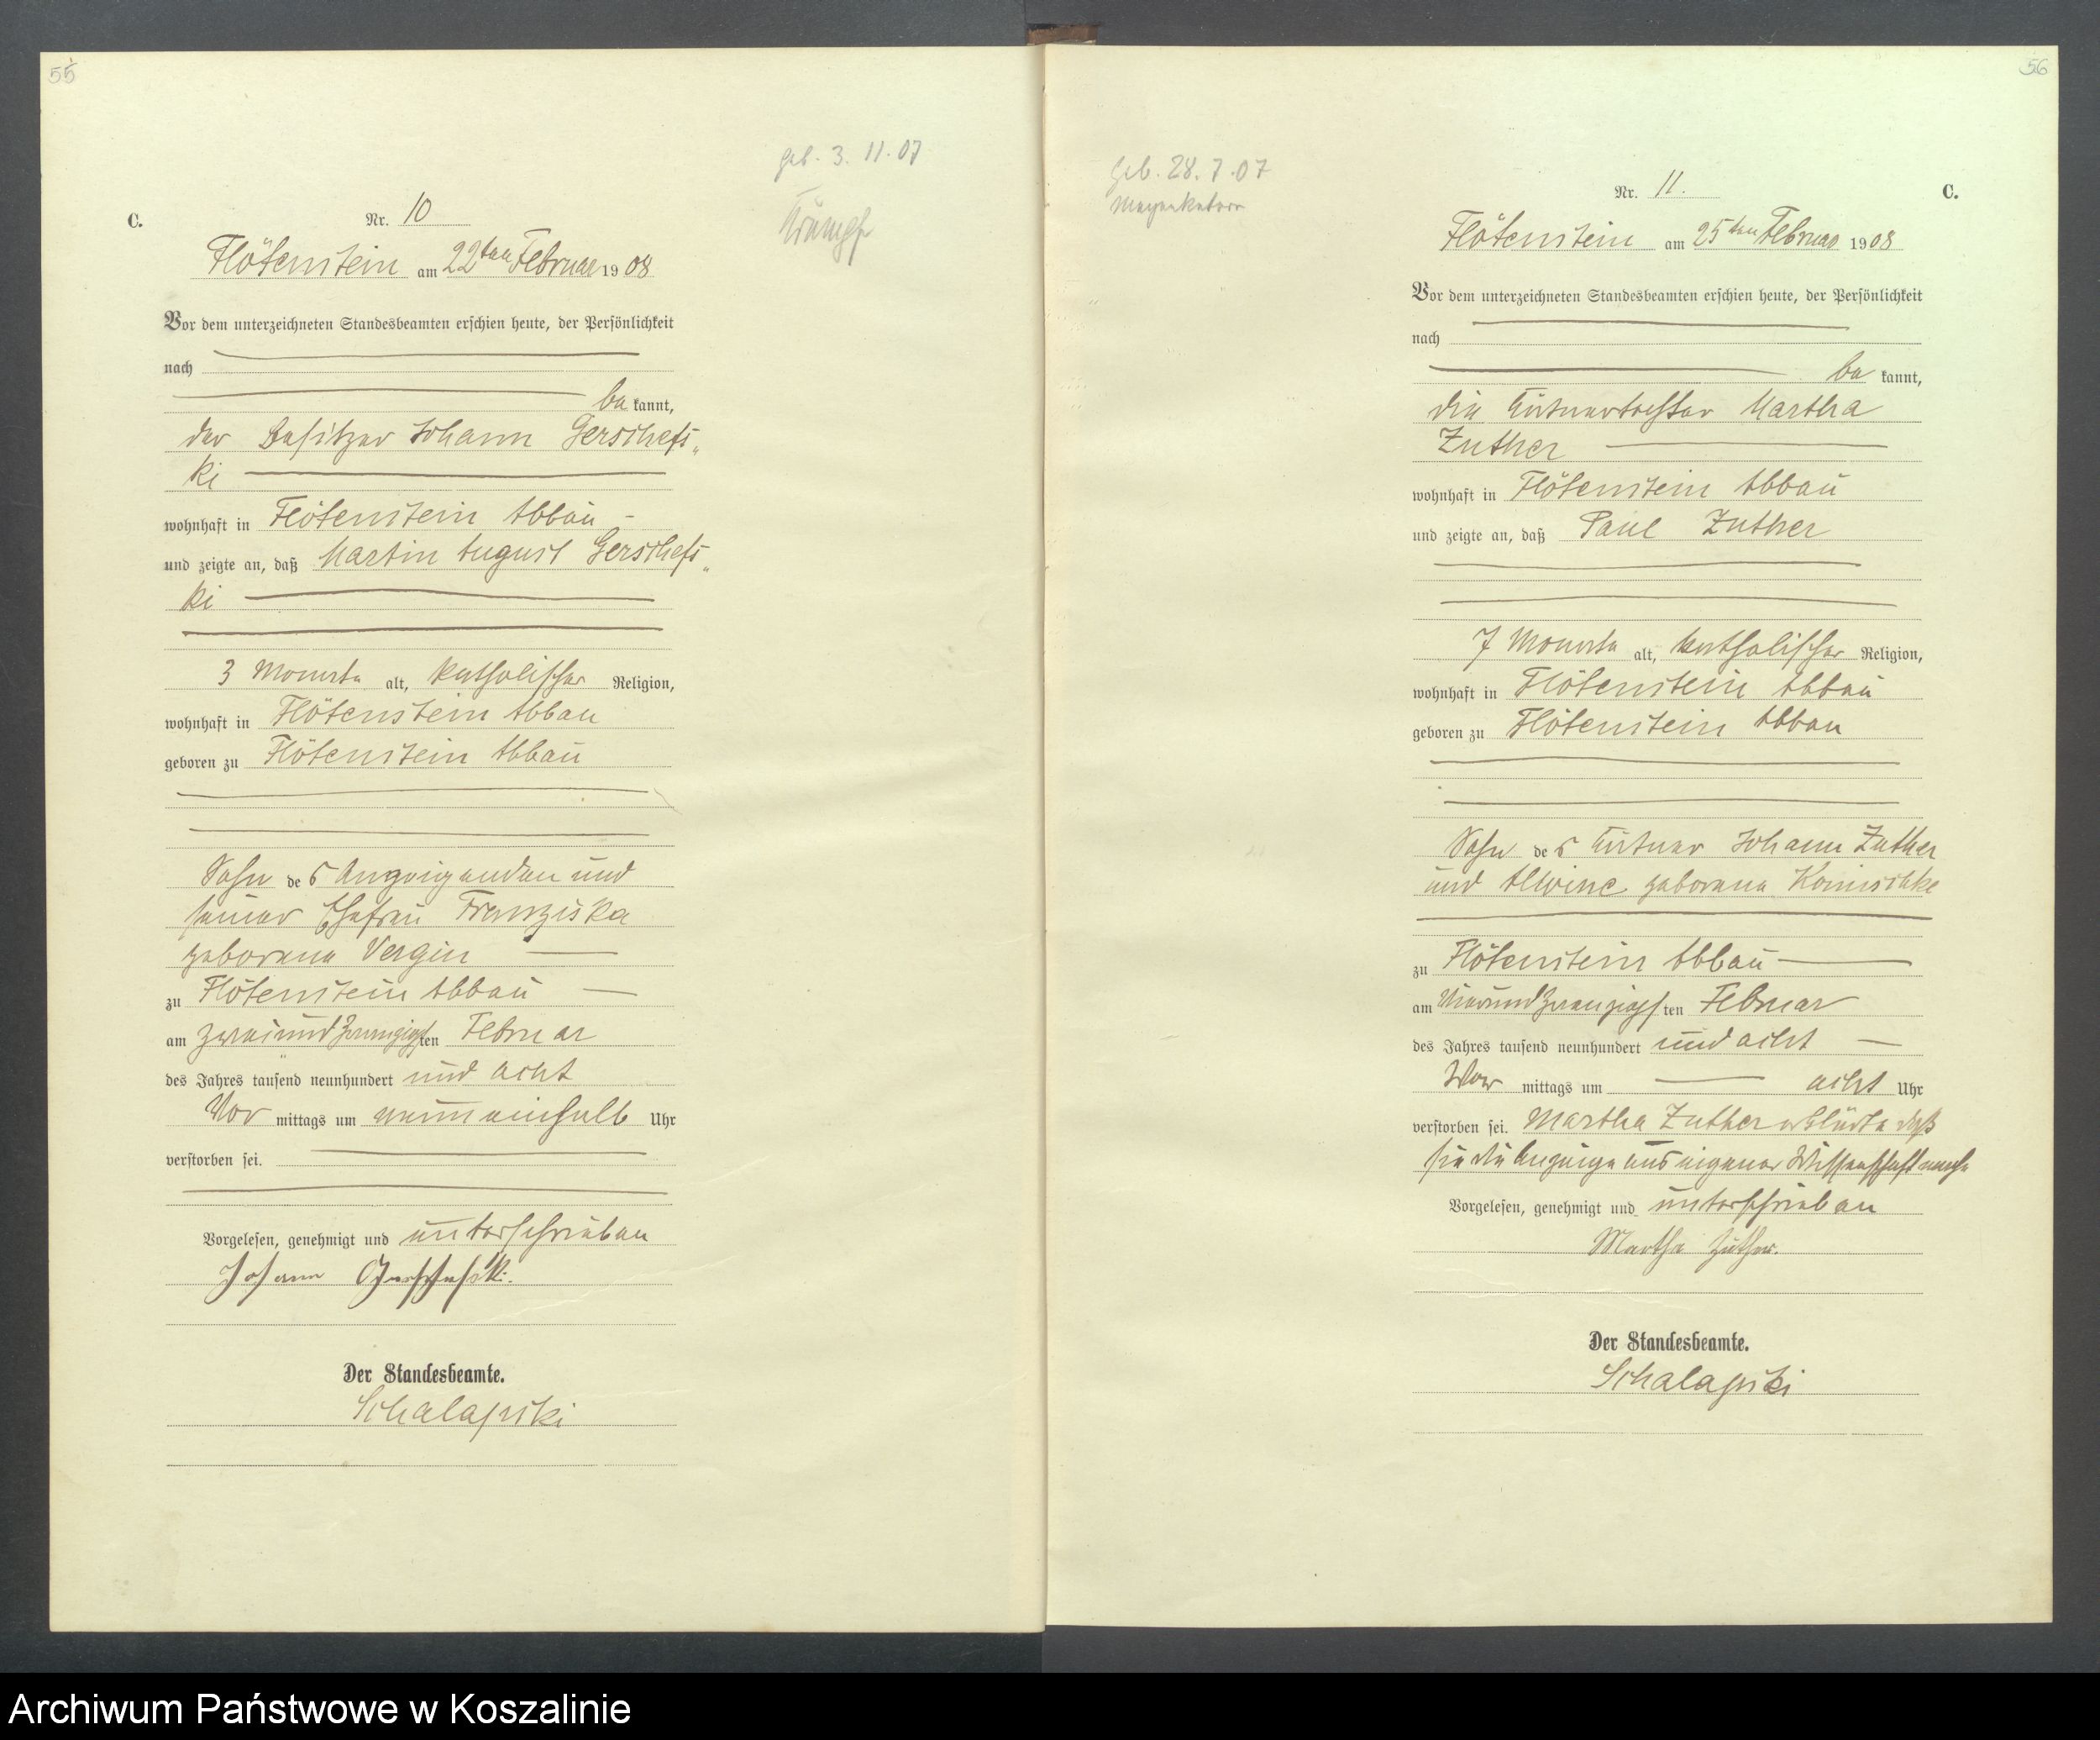 55
geb. 3. 11. 07
Krämpfe
C.
Nr. 10
Flötenstein am 22ten Februar 1908
Vor dem unterzeichneten Standesbeamten erschien heute, der Persönlichkeit
nach
be kannt,
der Besitzer Johann Gerschefs„
ki
wohnhaft in Flötenstein Abbau
und zeigte an, daß Martin August Gerschefs„
ki
3 Monate alt, katholischer Religion,
wohnhaft in Flötenstein Abbau
geboren zu Flötenstein Abbau
Sohn des Anzeigenden und
seiner Ehefrau Franziska
geborene Vergin
zu Flötenstein Abbau
am zweiundzwanzigsten Februar
des Jahres tausend neunhundert und acht
Vor mittags um neuneinhalb Uhr
verstorben sei.
Vorgelesen, genehmigt und unterschrieben
Johann Gerschefski.
Der Standesbeamte.
Schalapski
56
geb. 28. 7. 07
Magenkatarr
Nr. 11.
C.
Flötenstein am 25ten Februar 1908
Vor dem unterzeichneten Standesbeamten erschien heute, der Persönlichkeit
nach
be kannt,
die Martha
Zuther
wohnhaft in Flötenstein Abbau
und zeigte an, daß Paul Zuther
7 Monate alt, katholischer Religion,
wohnhaft in Flötenstein Abbau
geboren zu Flötenstein Abbau
Sohn des Johann Zuther
und Alwine geborene
zu Flötenstein Abbau
am vierundzwanzigsten Februar
des Jahres tausend neunhundert und acht
Vor mittags um acht Uhr
verstorben sei. Martha Zuther erklärte daß
sie die Anzeige aus eigener Wissenschaft mache
Vorgelesen, genehmigt und unterschrieben
Martha Zuther.
Der Standesbeamte.
Schalapski
Archiwum Państwowe w Koszalinie